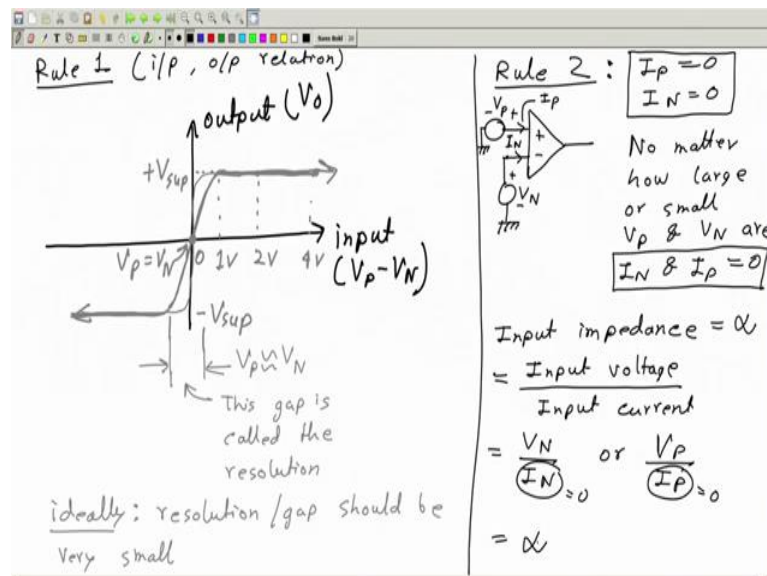 Rule 1 (i/p, o/p relation)
output (Vo)
+Vsup
input
(Vp-VN)
Vp=VN 0 1V 2V 4V
-Vsup
Vp≈VN
This gap is
called the
resolution
ideally: resolution/gap should be
very small
Rule 2: Ip=0
IN=0
-Vp+ Ip
+
IN
-
+
VN
-
No matter
how large
or small
Vp & VN are
IN & Ip = 0
Input impedance = α
= Input voltage
Input current
= VN or Vp
IN=0 Ip=0
= α